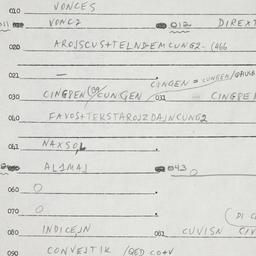 010 VONCES
011 VONCZ 012 DIREXT
020 AROJSCUS+TELNDEMCUNG2- (466
021 —
CINGEN = CUNGEN/
030 CINGPEN CUNGEN 031 CINGPE
040 FAVOS+TEKSTAROJZDAJNCUNG2
041 NAXSOL
AL1MAJ 043 0
060 0
070 0
080 INDICEJN 081 CUVISN
090 CONVEJTIK /QED CO+V